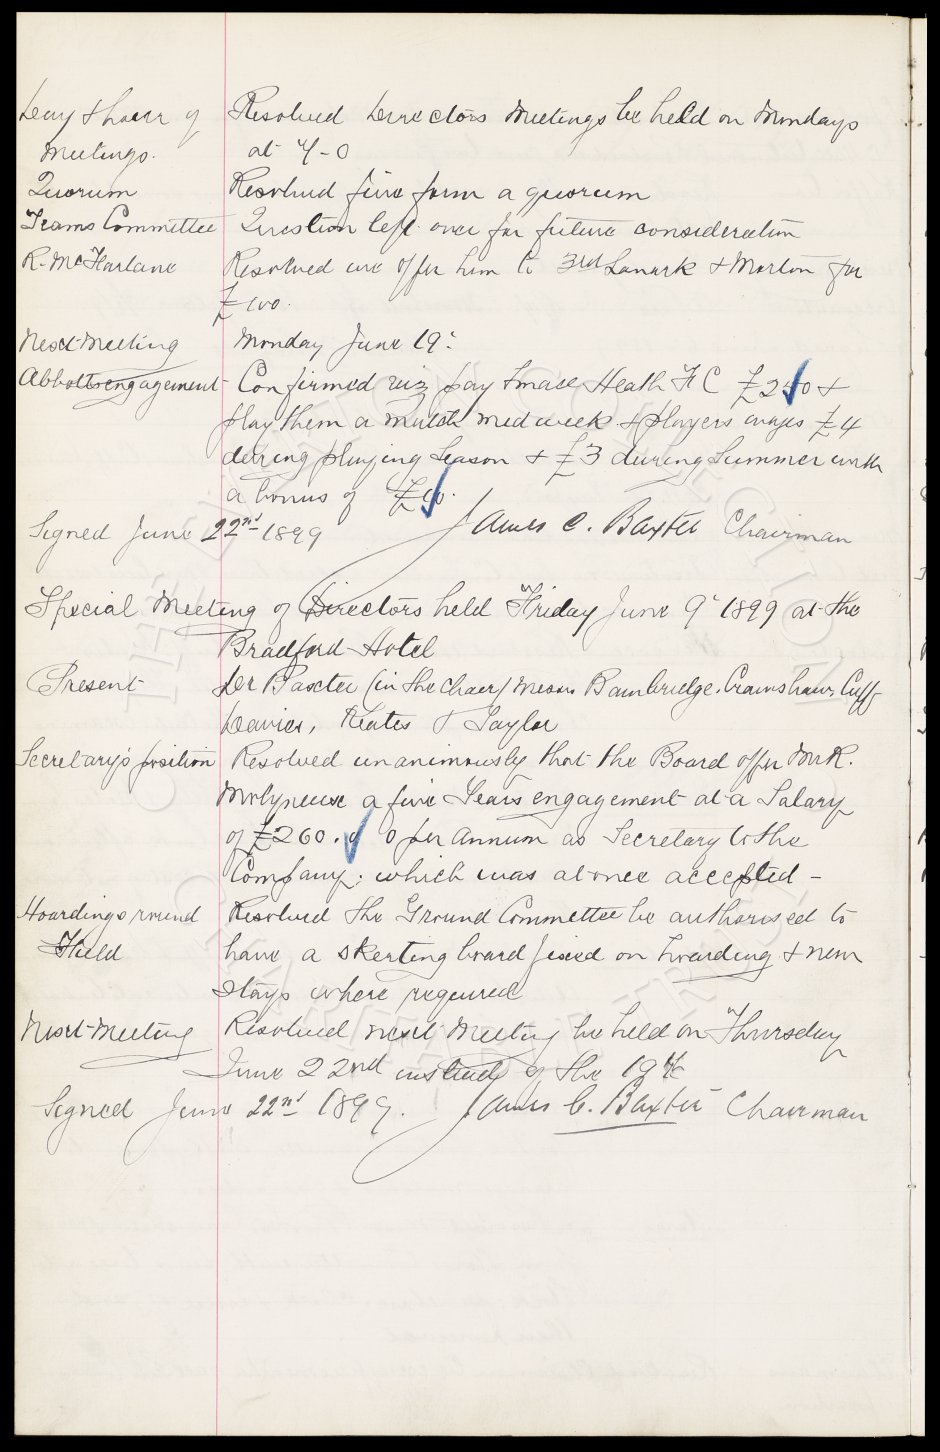 Day & hour of Resolved Directors Meetings be held on Mondays
Meetings. at 4-0
Quorum Resolved five form a quorum
Teams Committee Question left over for future consideration
R. McFarlane Resolved we offer him to 3rd Lanark & Morton for
£100.
Next Meeting Monday June 19th.
Abbotts engagement Confirmed viz pay Small Heath F C £250 &
play them a match mid week & players wages £4
during playing Season & £3 during Summer with
a bonus of £10.
Signed June 22nd 1899 James C. Baxter Chairman
Special Meeting of Directors held Friday June 9th 1899 at the
Bradford Hotel
Present Dr Baxter (in the chair) Messrs Bainbridge, Crawshaw, Cuff
Davies, Keates & Taylor
Secretary's position Resolved unanimously that the Board offer Mr R.
Molyneux a five Years engagement at a Salary
of £260. 0. 0 per annum as Secretary to the
Company: which was at once accepted -
Hoardings round Resolved the Ground Committee be authorised to
Field have a skerting board fixed on hoarding & new
stays where required
Next Meeting Resolved next Meeting be held on Thursday
June 22nd instead of the 19th
Signed June 22nd 1899. James C. Baxter Chairman